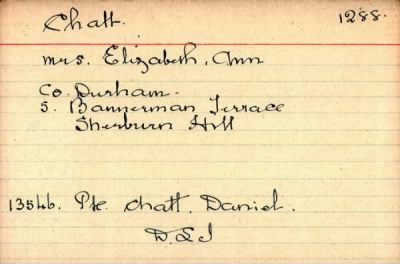 Chatt. 1288.
Mrs. Elizabeth, Ann
Co. Durham.
5. Bannerman Terrace
Sherburn Hill
13546. Pte. Chatt. Daniel.
D.L.I